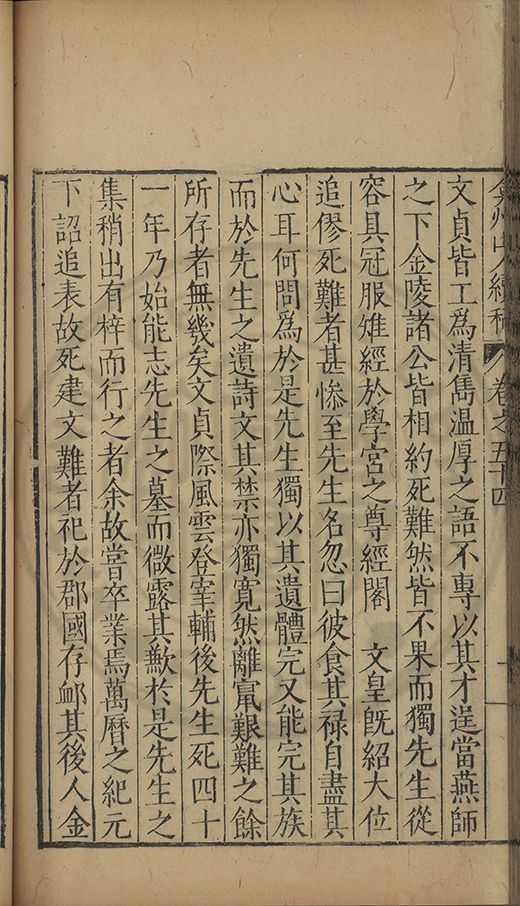 弇州山人續稿 卷之五十四
文貞皆工爲清雋温厚之語不專以其才逞當燕師
之下金陵諸公皆相約死難然皆不果而獨先生從
容具冠服雉經於學宮之尊經閣 文皇既紹大位
追僇死難者甚慘至先生名忽曰彼食其禄自盡其
心耳何問爲於是先生獨以其遺體完又能完其族
而於先生之遺詩文其禁亦獨寬然離竄艱難之餘
所存者無幾矣文貞際風雲登宰輔後先生死四十
一年乃始能志先生之墓而微露其歉於是先生之
集稍出有梓而行之者余故嘗卒業焉萬曆之紀元
下詔追表故死建文難者祀於郡國存䘏其後人金